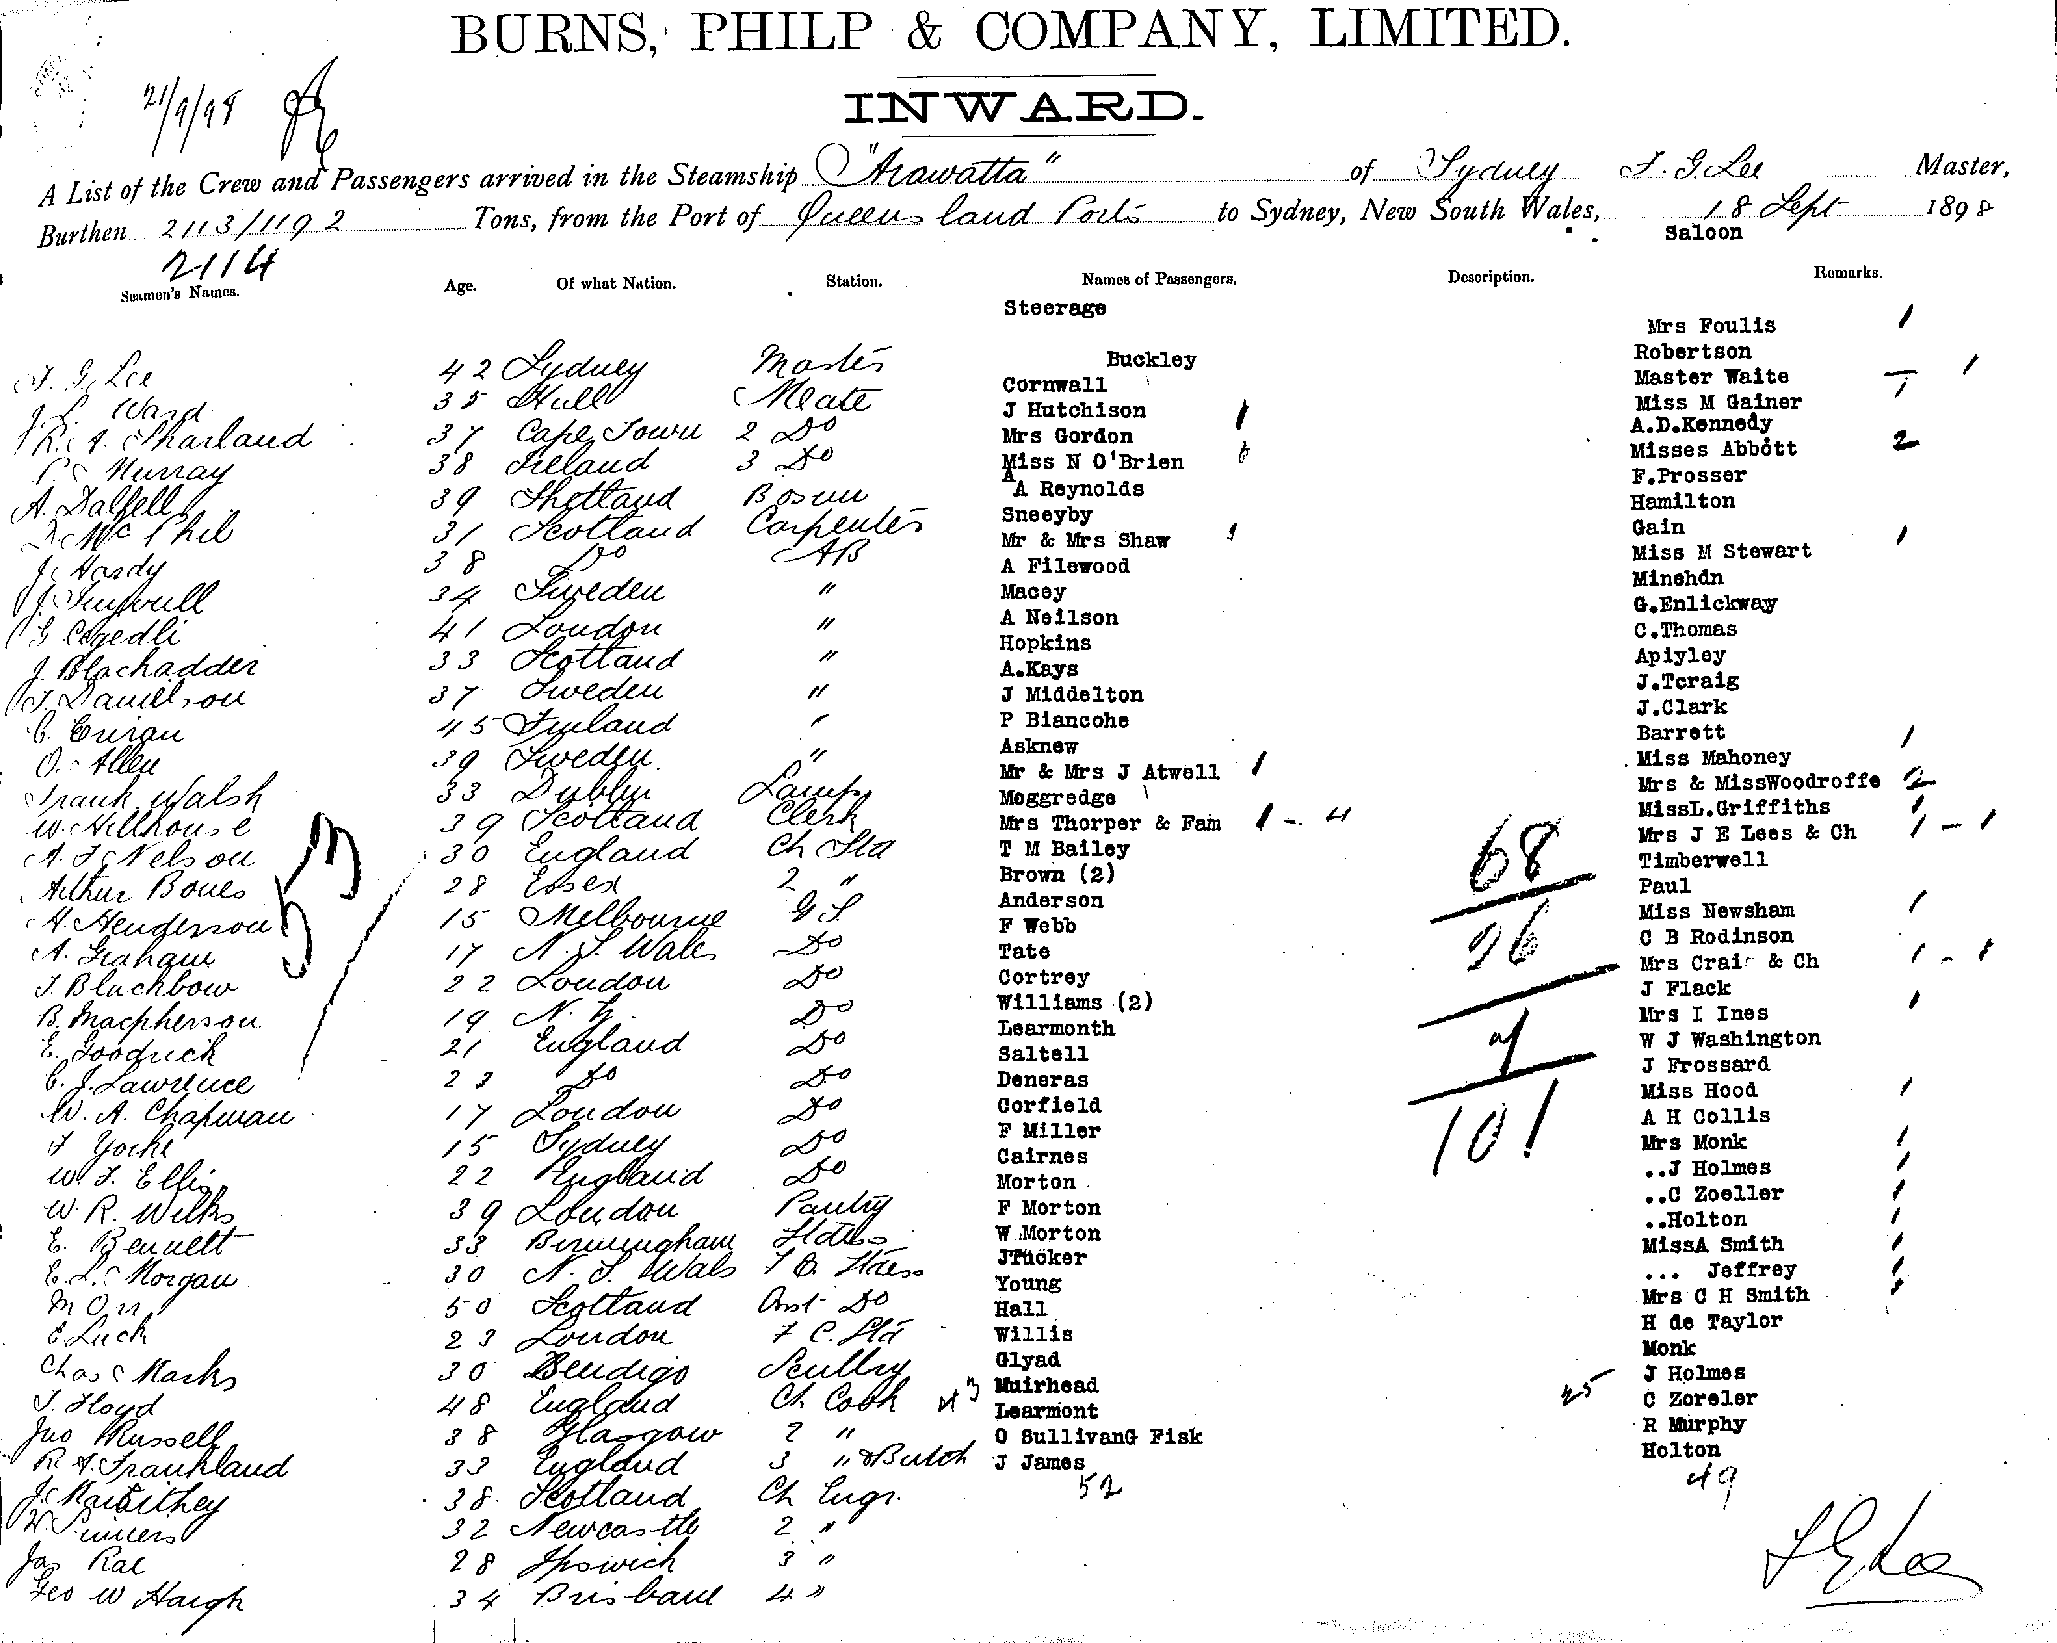 BURNS, PHILP & COMPANY, LIMITED.
INWARD.
21/9/98
A List of the Crew and Passengers arrived in the Steamship "Arawatta" of Sydney T. G Lee Master,
Burthen 2113/1192 Tons, from the Port of Queensland Ports to Sydney, New South Wales, 18 Sept 1898
2114
Saloon
Seamen's Names. Age. Of what Nation. Station. Names of Passengers, Description. Remarks.
T. G. Lee 42 Sydney Master
J. L. Ward 35 Hull Mate
R. A. Sharland 37 Cape Town 2 Do
P. Murray 38 Ireland 3 Do
A. Dalfell 39 Shetland Bosun
D. McPhil 31 Scotland Carpenter
J. Hardy 38 Do AB
J. 34 Sweden "
G 41 London "
J. Blackadder 33 Scotland "
J. Danielson 37 Sweden "
C. Curran 45 Finland "
O. Allen 39 Sweden "
Frank Walsh 33 Dublin Lamps
W. Hillhouse 39 Scotland Clerk
A. F. Nelson 30 England Ch Std
Arthur Bones 28 Essex 2 "
H. Henderson 15 Melbourne G S
A. Graham 17 N. S. Wales Do
T. Blackbow 22 London Do
B. Macpherson 19 N. Z. Do
E. Goodrick 21 England Do
C. J. Lawrence 23 Do Do
W. A. Chapman 17 London Do
F Yorke 15 Sydney Do
W. F. Ellis 22 England Do
W. R. Wilks 39 London Pantry
E. Bennett 33 Birmingham Stdess
E. L. Morgan 30 N. S. Wals F C. Stdess
M Orr 50 Scotland Asst Do
C Luck 23 London F C. Std
Chas Marks 30 Bendigo Scullry
T. Floyd 48 England Ch Cook
Jno Russell 38 Glasgow 2 "
R. A. Frankland 33 England 3 " & Butch
J. 38 Scotland Ch Engr.
W. 32 Newcastle 2 "
Jas Rae 28 Ipswich 3 "
Geo W Haigh 34 Brisbane 4 "
53
Steerage
Buckley
Cornwall
J Hutchison 1
Mrs Gordon
Miss N O'Brien
A Reynolds
Sneeyby
Mr & Mrs Shaw 1
A Filewood
Macey
A Neilson
Hopkins
A.Kays
J Middelton
P Biancohe
Asknew
Mr & Mrs J Atwell 1
Moggredge
Mrs Thorper & Fam 1 - 4
T M Bailey
Brown (2)
Anderson
F Webb
Tate
Cortrey
Williams (2)
Learmonth
Saltell
Deneras
Corfield
F Miller
Cairnes
Morton
F Morton
W Morton
JTucker
Young
Hall
Willis
Glyad
43 Muirhead
Learmont
O SullivanG Fisk
J James
52
68
26
7
101
Mrs Foulis 1
Robertson
Master Waite — 1
Miss M Gainer 1
A.D.Kennedy
Misses Abbott 2
F.Prosser
Hamilton
Gain
Miss M Stewart 1
Minehdn
G.Enlickway
C.Thomas
Apiyley
J.Tcraig
J.Clark
Barrett
Miss Mahoney 1
Mrs & MissWoodroffe 2
MissL.Griffiths 1
Mrs J E Lees & Ch 1 - 1
Timberwell
Paul
Miss Newsham 1
C B Rodinson
Mrs Crai & Ch 1 - 1
J Flack
Mrs I Ines 1
W J Washington
J Frossard
Miss Hood 1
A H Collis
Mrs Monk 1
..J Holmes 1
..C Zoeller 1
..Holton 1
MissA Smith 1
... Jeffrey 1
Mrs C H Smith 1
H de Taylor
Monk
25 J Holmes
C Zoreler
R Murphy
Holton
49
T G Lee